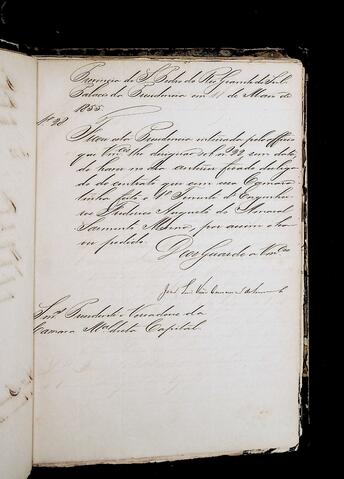 Provincia de S. Pedro do Rio Grande do Sul
Palacio da Presidencia em 11 de Maio de
1855
Nº 28
Fica esta Presidencia inteirada pelo officio
que Vm.ces lhe dirigirão sob nº 22, com data
de haver no dia anterior ficado desliga
do do contrato que com essa Camara
tinha feito o 1º Tenente d'Engenhei
ros Frederico Augusto do Amaral
Sarmento Menna, por assim o ha
ver pedido
Deos Guarde a Vm.ces
Snr.es Presidente e Vereadores da
Camara M.al desta Capital